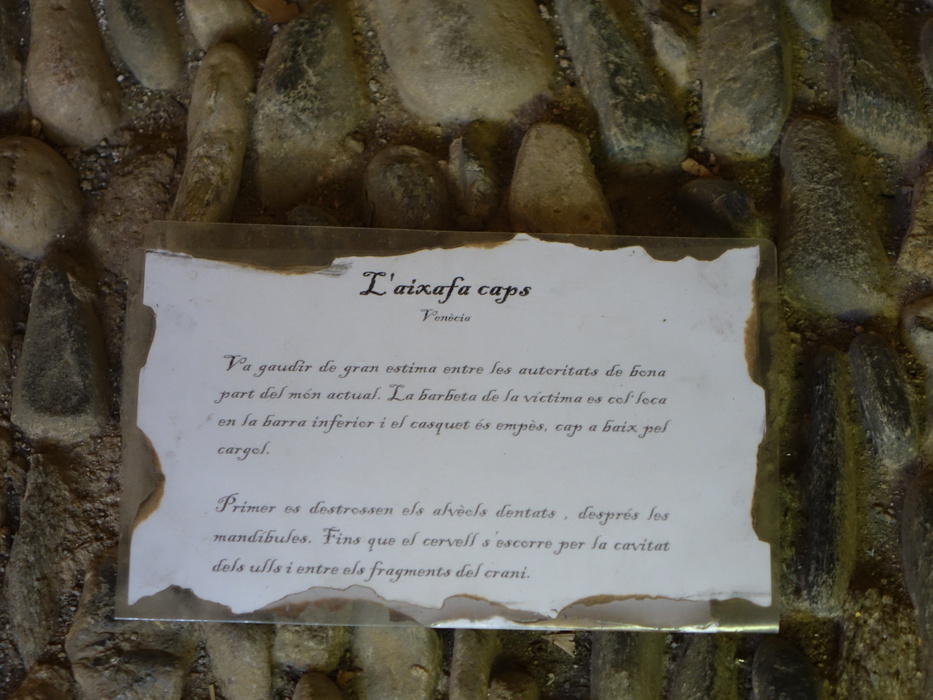 L'aixafa caps
Venècia
Va gaudir de gran estima entre les autoritats de bona
part del món actual. La barbeta de la víctima es col·loca
en la barra inferior i el casquet és empès, cap a baix pel
cargol.
Primer es destrossen els alvèols dentats , després les
mandíbules. Fins que el cervell s'escorre per la cavitat
dels ulls i entre els fragments del crani.